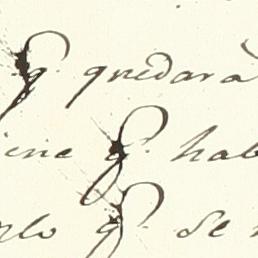 q. quedarà
ine q. hab
rlo q. se